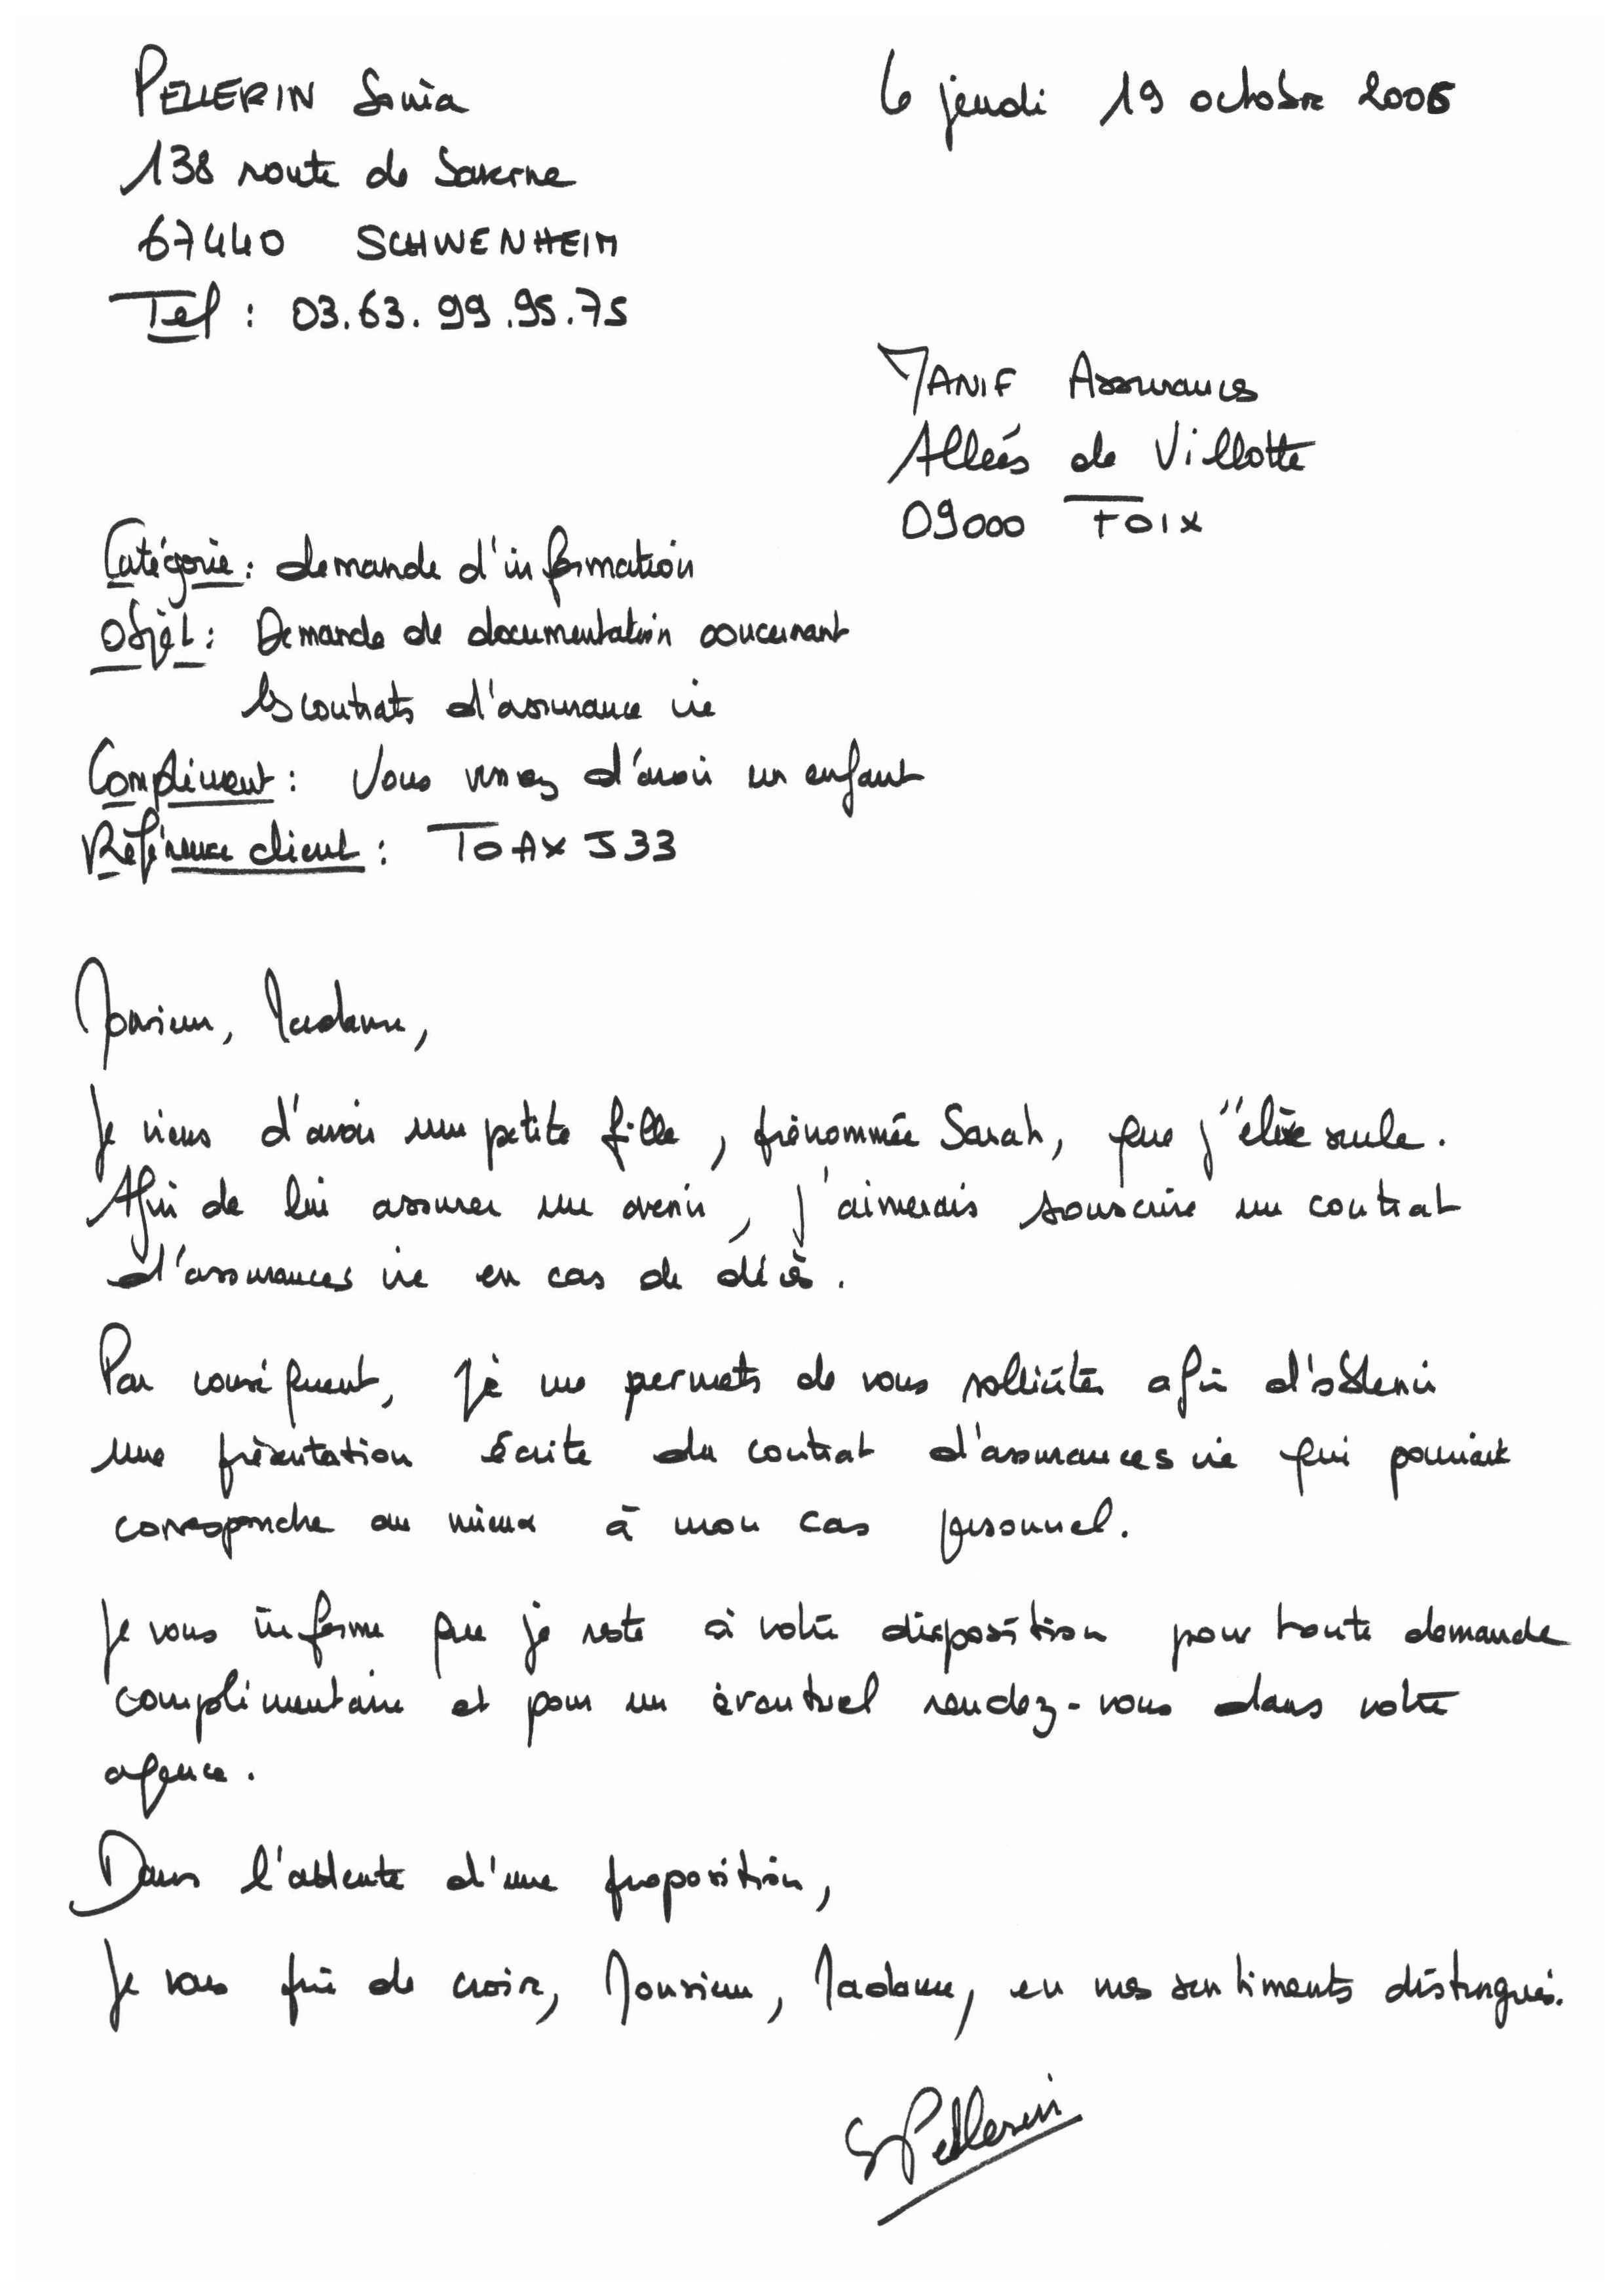 PELLERIN Sonia
138 route de Saverne
67440 SCHWENHEIM
Tel : 03.63.99.95.75
Le jeudi 19 octobre 2006
MANIF Assurances
Allées de Villotte
09000 FOIX
Catégorie : demande d'information
Objet : Demande de documentation concernant
les contrats d'assurance vie
Complément : Vous venez d'avoir un enfant
Référence client : TOAXJ33
Monsieur, Madame,
Je viens d'avoir une petite fille, prénommée Sarah, que j'élève seule.
Afin de lui assurer un avenir, j'aimerais souscrire un contrat
d'assurances vie en cas de décès.
Par conséquent, je me permets de vous solliciter afin d'obtenir
une présentation écrite du contrat d'assurances vie qui pourrait
correspondre au mieux à mon cas personnel.
Je vous informe que je reste à votre disposition pour toute demande
complémentaire et pour un éventuel rendez-vous dans votre
agence.
Dans l'attente d'une proposition,
Je vous prie de croire, Monsieur, Madame, en mes sentiments distingués.
SPellerin